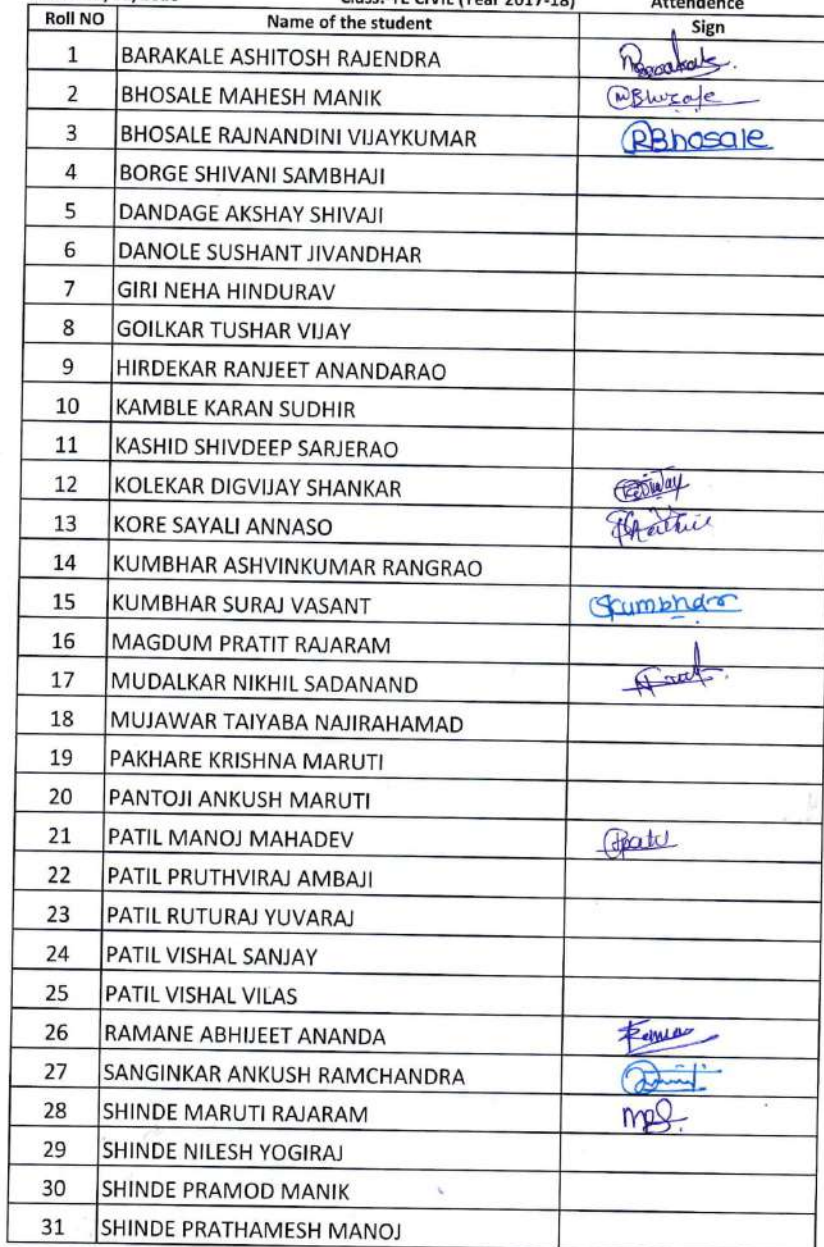 Class: TE CIVIL (Year 2017-18) Attendence
Roll NO Name of the student Sign
1 BARAKALE ASHITOSH RAJENDRA
2 BHOSALE MAHESH MANIK
3 BHOSALE RAJNANDINI VIJAYKUMAR RBhosale
4 BORGE SHIVANI SAMBHAJI
5 DANDAGE AKSHAY SHIVAJI
6 DANOLE SUSHANT JIVANDHAR
7 GIRI NEHA HINDURAV
8 GOILKAR TUSHAR VIJAY
9 HIRDEKAR RANJEET ANANDARAO
10 KAMBLE KARAN SUDHIR
11 KASHID SHIVDEEP SARJERAO
12 KOLEKAR DIGVIJAY SHANKAR
13 KORE SAYALI ANNASO
14 KUMBHAR ASHVINKUMAR RANGRAO
15 KUMBHAR SURAJ VASANT Skumbhar
16 MAGDUM PRATIT RAJARAM
17 MUDALKAR NIKHIL SADANAND
18 MUJAWAR TAIYABA NAJIRAHAMAD
19 PAKHARE KRISHNA MARUTI
20 PANTOJI ANKUSH MARUTI
21 PATIL MANOJ MAHADEV
22 PATIL PRUTHVIRAJ AMBAJI
23 PATIL RUTURAJ YUVARAJ
24 PATIL VISHAL SANJAY
25 PATIL VISHAL VILAS
26 RAMANE ABHIJEET ANANDA
27 SANGINKAR ANKUSH RAMCHANDRA
28 SHINDE MARUTI RAJARAM
29 SHINDE NILESH YOGIRAJ
30 SHINDE PRAMOD MANIK
31 SHINDE PRATHAMESH MANOJ